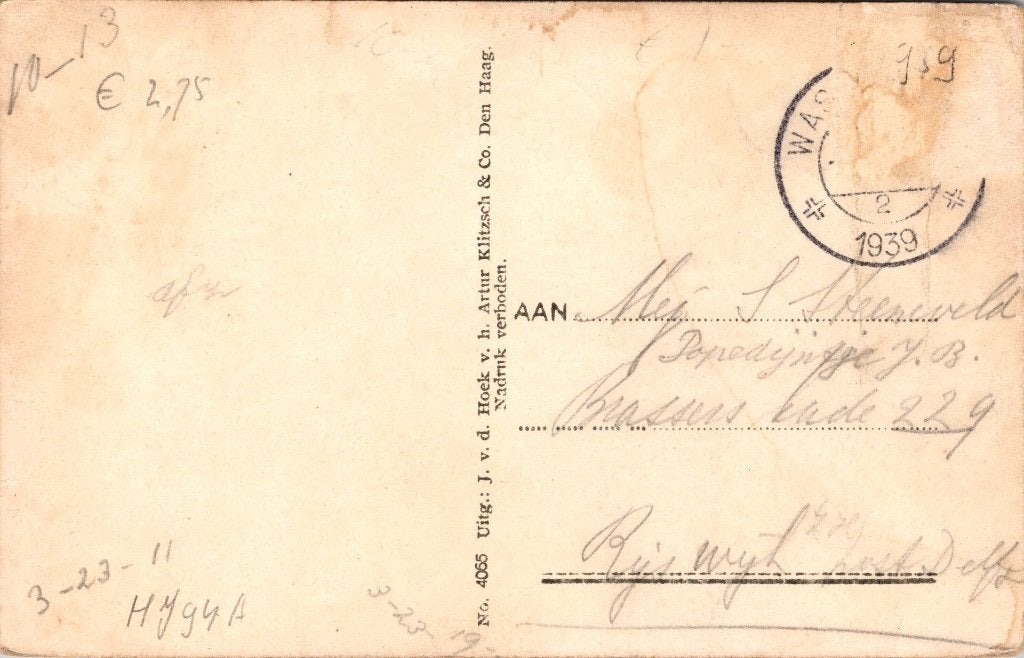 10-13
€ 2,75
3-23-11
3-23-19-
No. 4065 Uitg.: J. v. d. Hoek v. h. Artur Klitzsch & Co. Den Haag.
Nadruk verboden.
WAS
2
1939
AAN
Mej S Steenveld
J. B.
Brassers kade 229
Rijswijk post Delft